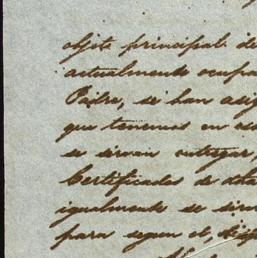 objeto principal de
actualmente ocupa
Padre, se han asig
que tenemos en es
se sirvan entregar,
Certificados de data
igualmente se sir
para segun el,